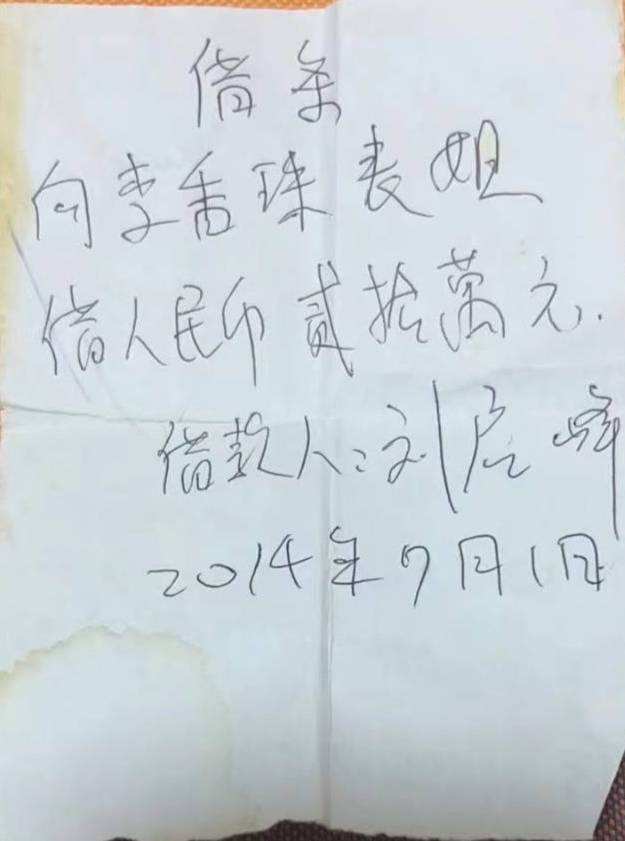 借条
向李香珠表姐
借人民币贰拾萬元.
借款人:刘 峰
2014年7月1日